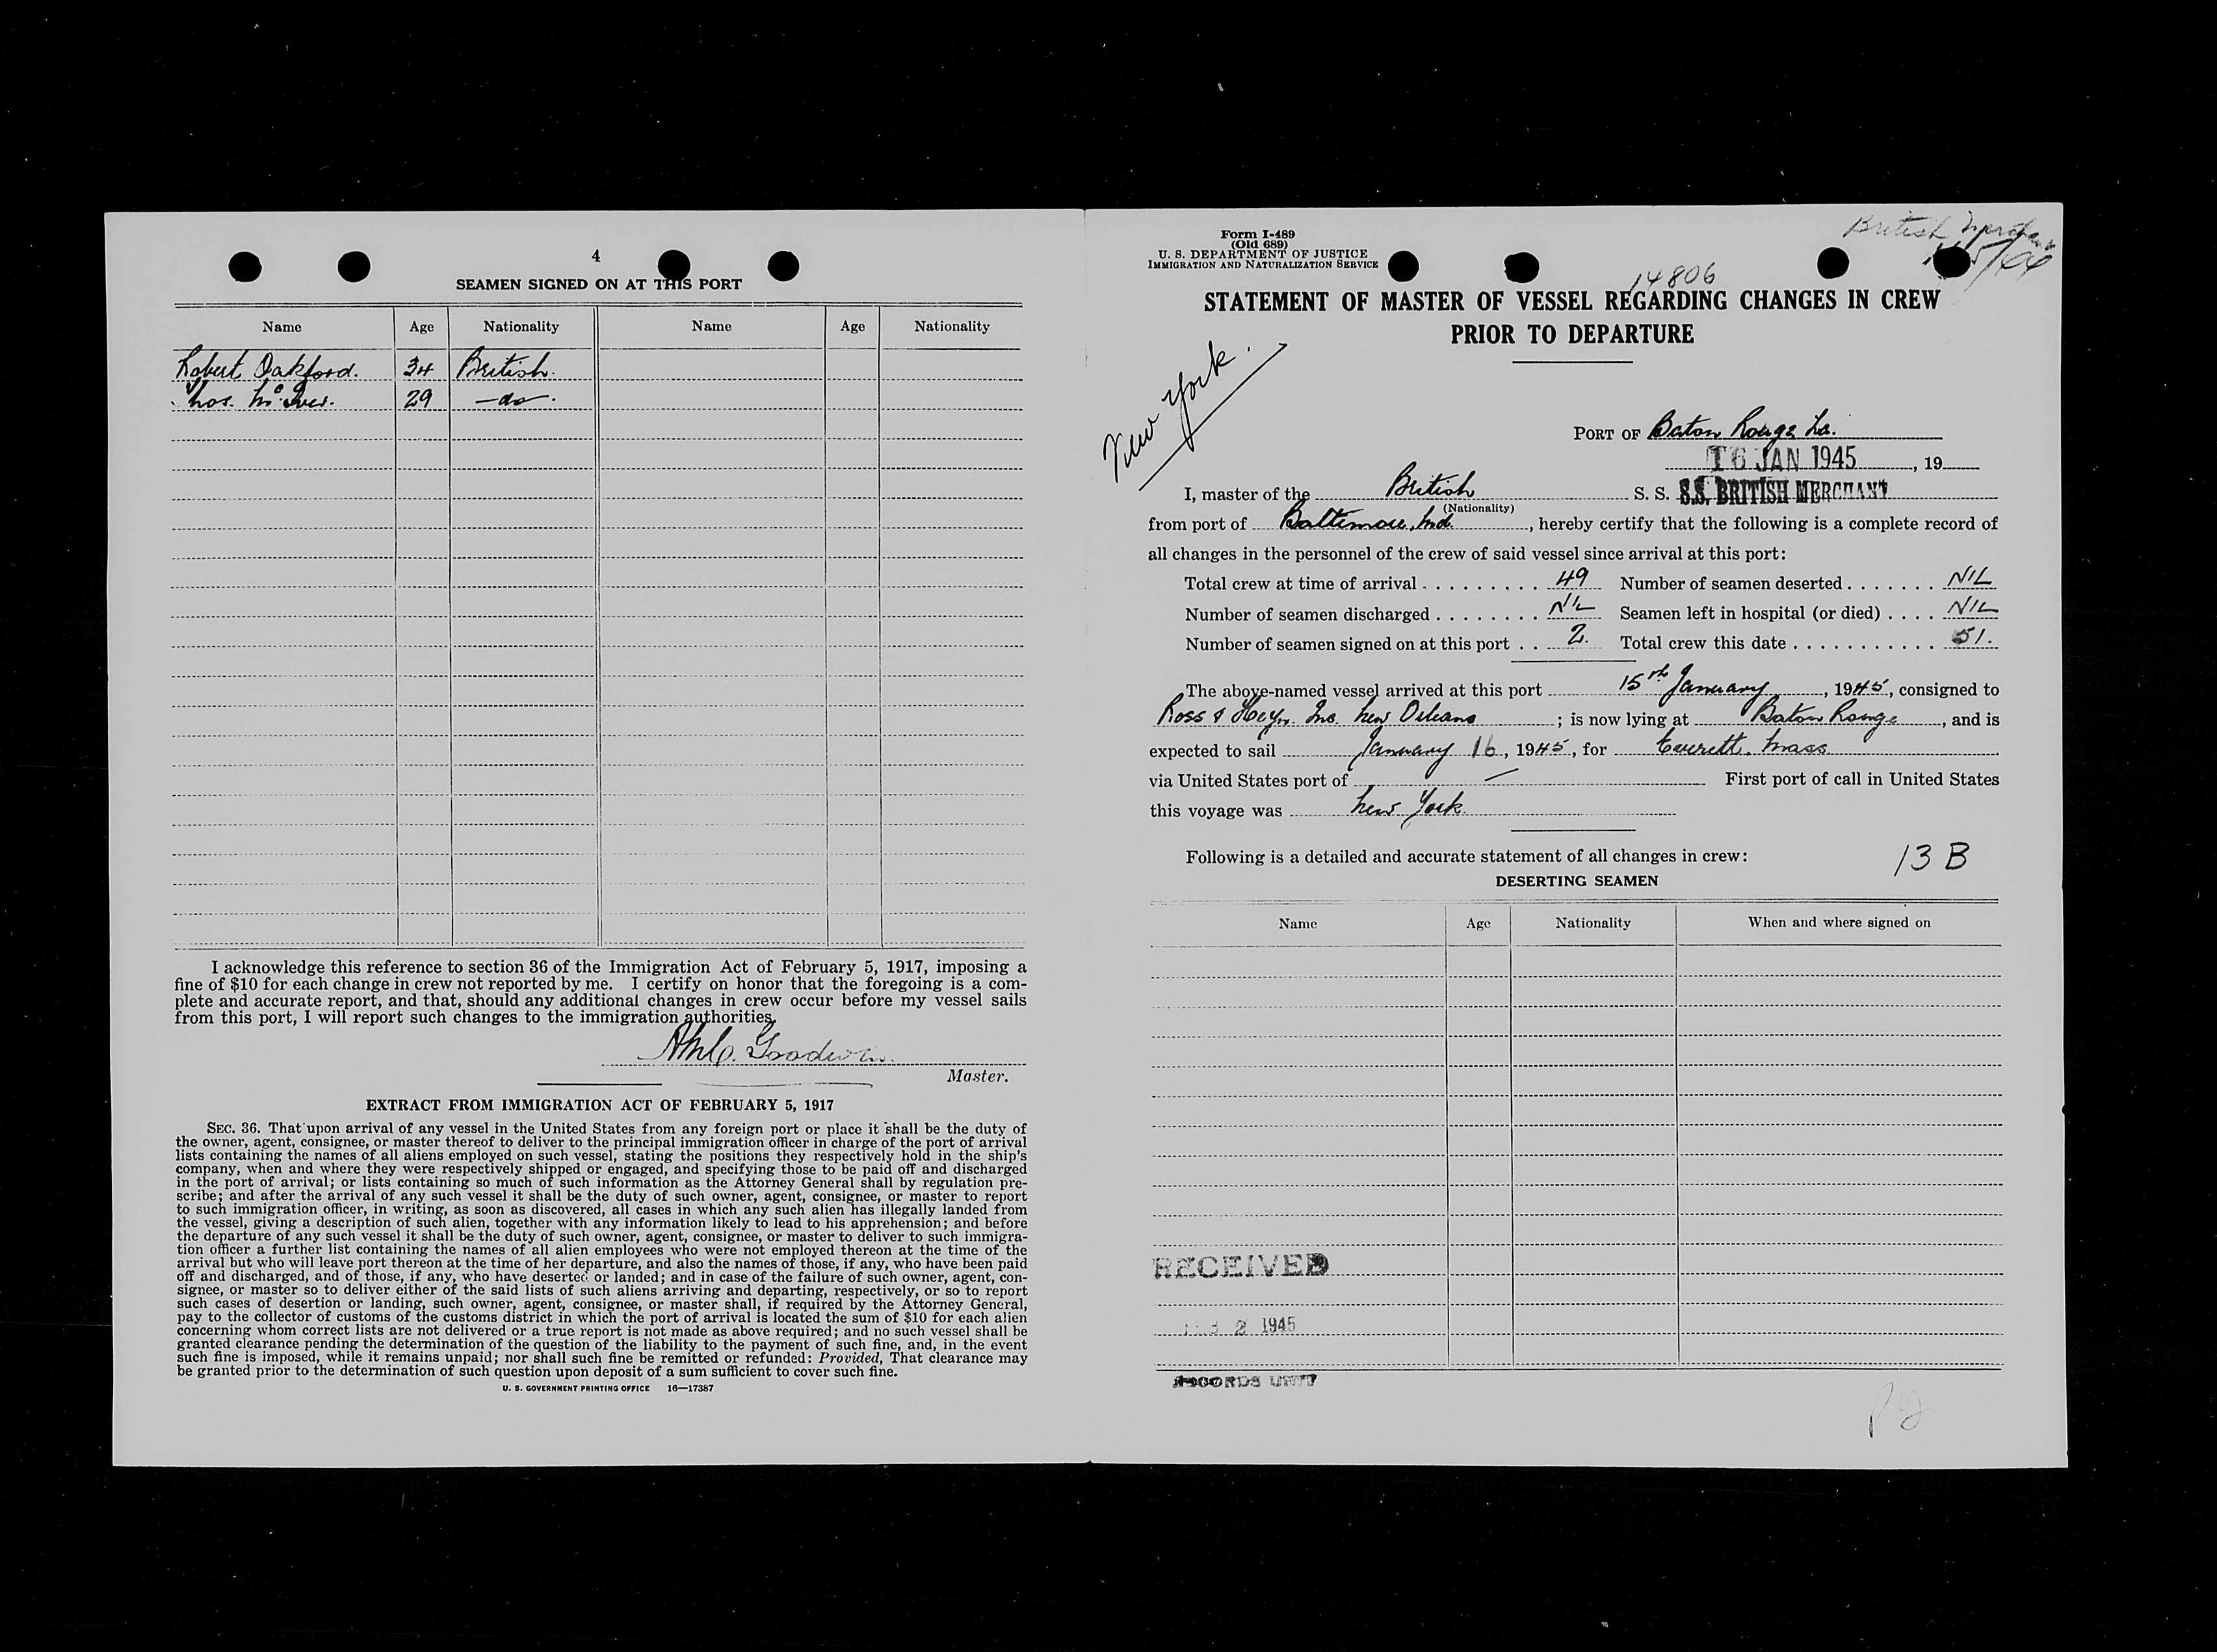 4
SEAMEN SIGNED ON AT THIS PORT
Name Age Nationality Name Age Nationality
Robert Oakford. 34 British.
Thos. McIver. 29 -do-.
I acknowledge this reference to section 36 of the Immigration Act of February 5, 1917, imposing a
fine of $10 for each change in crew not reported by me. I certify on honor that the foregoing is a com-
plete and accurate report, and that, should any additional changes in crew occur before my vessel sails
from this port, I will report such changes to the immigration authorities.
Goodwin
Master.
EXTRACT FROM IMMIGRATION ACT OF FEBRUARY 5, 1917
SEC. 36. That upon arrival of any vessel in the United States from any foreign port or place it shall be the duty of
the owner, agent, consignee, or master thereof to deliver to the principal immigration officer in charge of the port of arrival
lists containing the names of all aliens employed on such vessel, stating the positions they respectively hold in the ship's
company, when and where they were respectively shipped or engaged, and specifying those to be paid off and discharged
in the port of arrival; or lists containing so much of such information as the Attorney General shall by regulation pre-
scribe; and after the arrival of any such vessel it shall be the duty of such owner, agent, consignee, or master to report
to such immigration officer, in writing, as soon as discovered, all cases in which any such alien has illegally landed from
the vessel, giving a description of such alien, together with any information likely to lead to his apprehension; and before
the departure of any such vessel it shall be the duty of such owner, agent, consignee, or master to deliver to such immigra-
tion officer a further list containing the names of all alien employees who were not employed thereon at the time of the
arrival but who will leave port thereon at the time of her departure, and also the names of those, if any, who have been paid
off and discharged, and of those, if any, who have deserted or landed; and in case of the failure of such owner, agent, con-
signee, or master so to deliver either of the said lists of such aliens arriving and departing, respectively, or so to report
such cases of desertion or landing, such owner, agent, consignee, or master shall, if required by the Attorney General,
pay to the collector of customs of the customs district in which the port of arrival is located the sum of $10 for each alien
concerning whom correct lists are not delivered or a true report is not made as above required; and no such vessel shall be
granted clearance pending the determination of the question of the liability to the payment of such fine, and, in the event
such fine is imposed, while it remains unpaid; nor shall such fine be remitted or refunded: Provided, That clearance may
be granted prior to the determination of such question upon deposit of a sum sufficient to cover such fine.
U. S. GOVERNMENT PRINTING OFFICE 16—17387
Form I-489
(Old 689)
U. S. DEPARTMENT OF JUSTICE
IMMIGRATION AND NATURALIZATION SERVICE
British
14806
STATEMENT OF MASTER OF VESSEL REGARDING CHANGES IN CREW
PRIOR TO DEPARTURE
New York.
PORT OF Baton Rouge La.
16 JAN 1945, 19
I, master of the British S. S. S.S. BRITISH MERCHANT
(Nationality)
from port of Baltimore, Md., hereby certify that the following is a complete record of
all changes in the personnel of the crew of said vessel since arrival at this port:
Total crew at time of arrival 49 Number of seamen deserted NIL
Number of seamen discharged NIL Seamen left in hospital (or died) NIL
Number of seamen signed on at this port 2. Total crew this date 51.
The above-named vessel arrived at this port 15th January, 1945, consigned to
Ross & Heyn. Inc. New Orleans; is now lying at Baton Rouge, and is
expected to sail January 16, 1945, for Everett. Mass
via United States port of — First port of call in United States
this voyage was New York.
Following is a detailed and accurate statement of all changes in crew:
13 B
DESERTING SEAMEN
Name Age Nationality When and where signed on
RECEIVED
2 1945
RECORDS UNIT